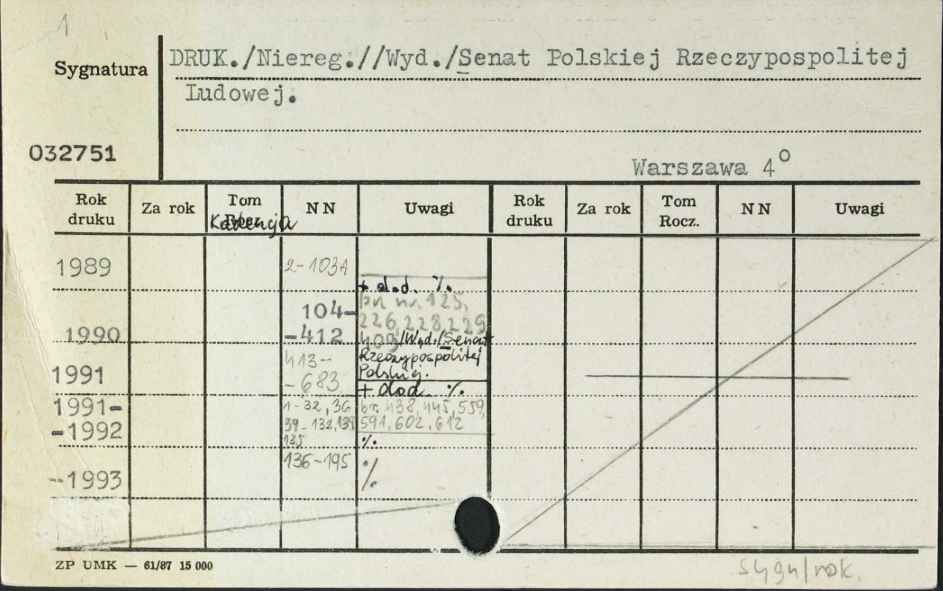 1
Sygnatura
DRUK./Niereg.//Wyd./Senat Polskiej Rzeczypospolitej
Ludowej.
032751
Warszawa 4°
Rok druku Za rok Tom Rocz. Kadencja NN Uwagi Rok druku Za rok Tom Rocz. NN Uwagi
1989 2-103A
+ dod. %
104- br. nr. 125,
226, 228, 229
1990 -412 409 /Wyd./Senat
413- Rzeczypospolitej
Polskiej.
1991 -683 + dod. %
1991- 1-32, 36 br. 438, 445, 559,
-1992 39-132, 134 591, 602, 612
135 %
136-195 %
-1993
ZP UMK — 61/87 15 000
sygn/rok.